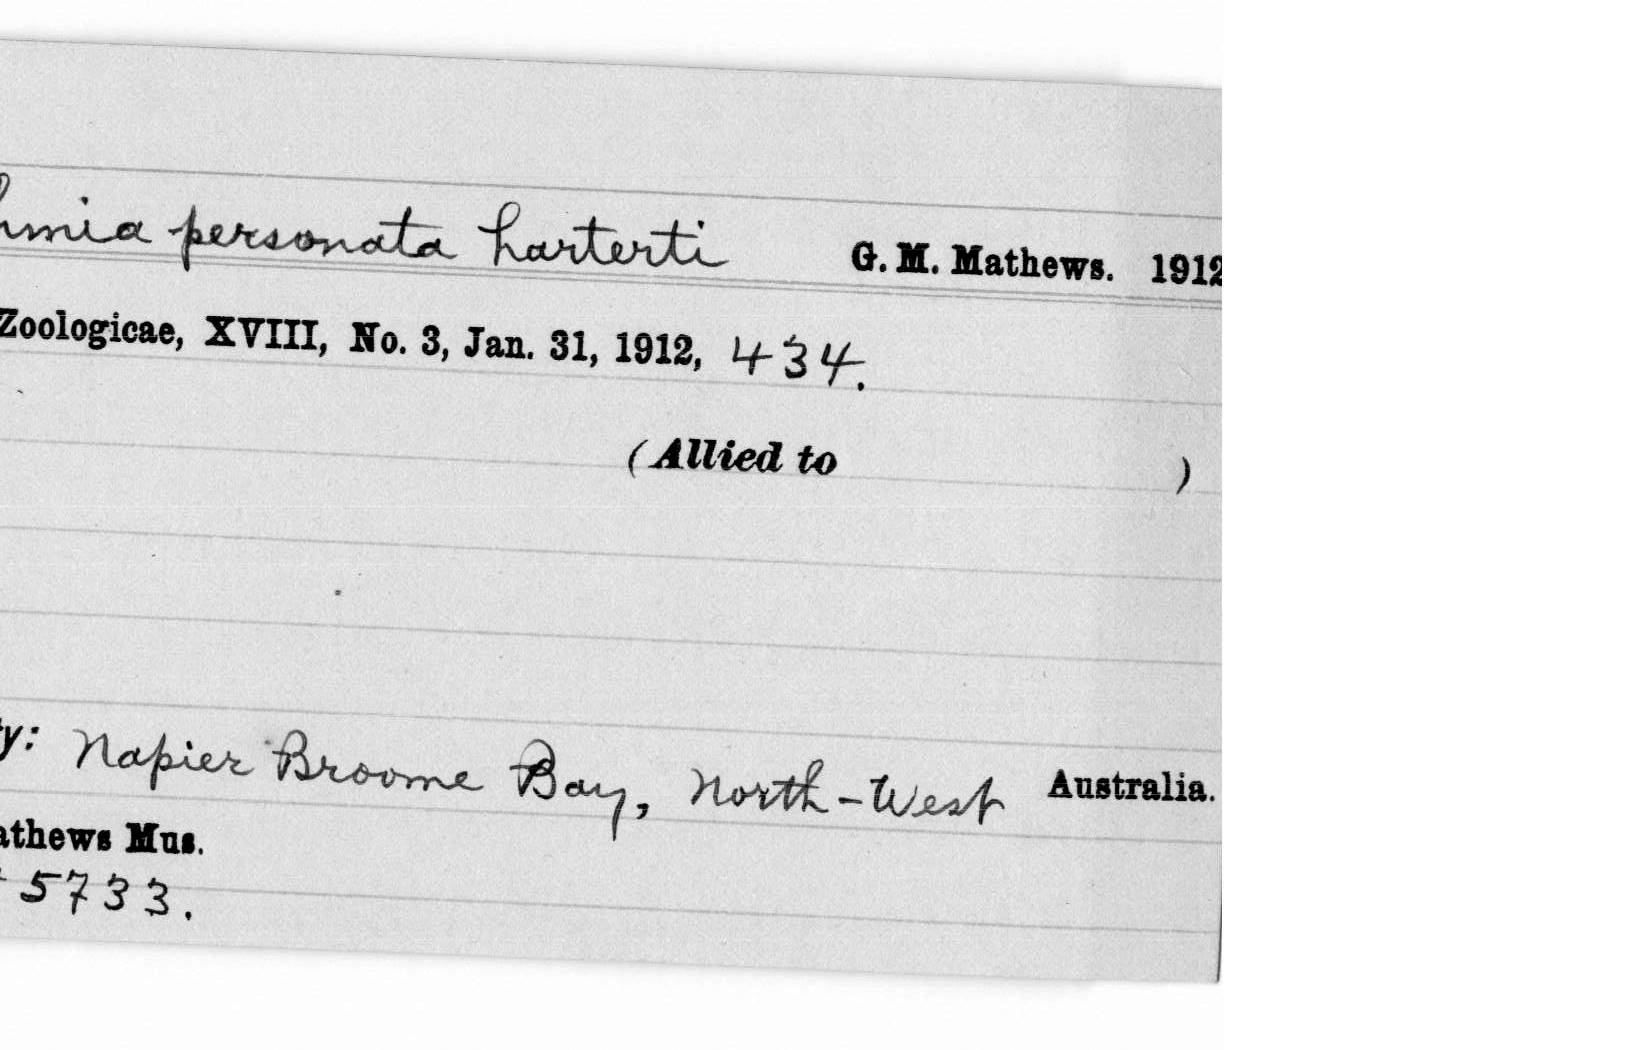 hmia personata harterti G. M. Mathews. 1912
Zoologicae, XVIII, No. 3, Jan. 31, 1912, 434.
(Allied to )
ty: Napier Broome Bay, North-West Australia.
athews Mus.
5733.